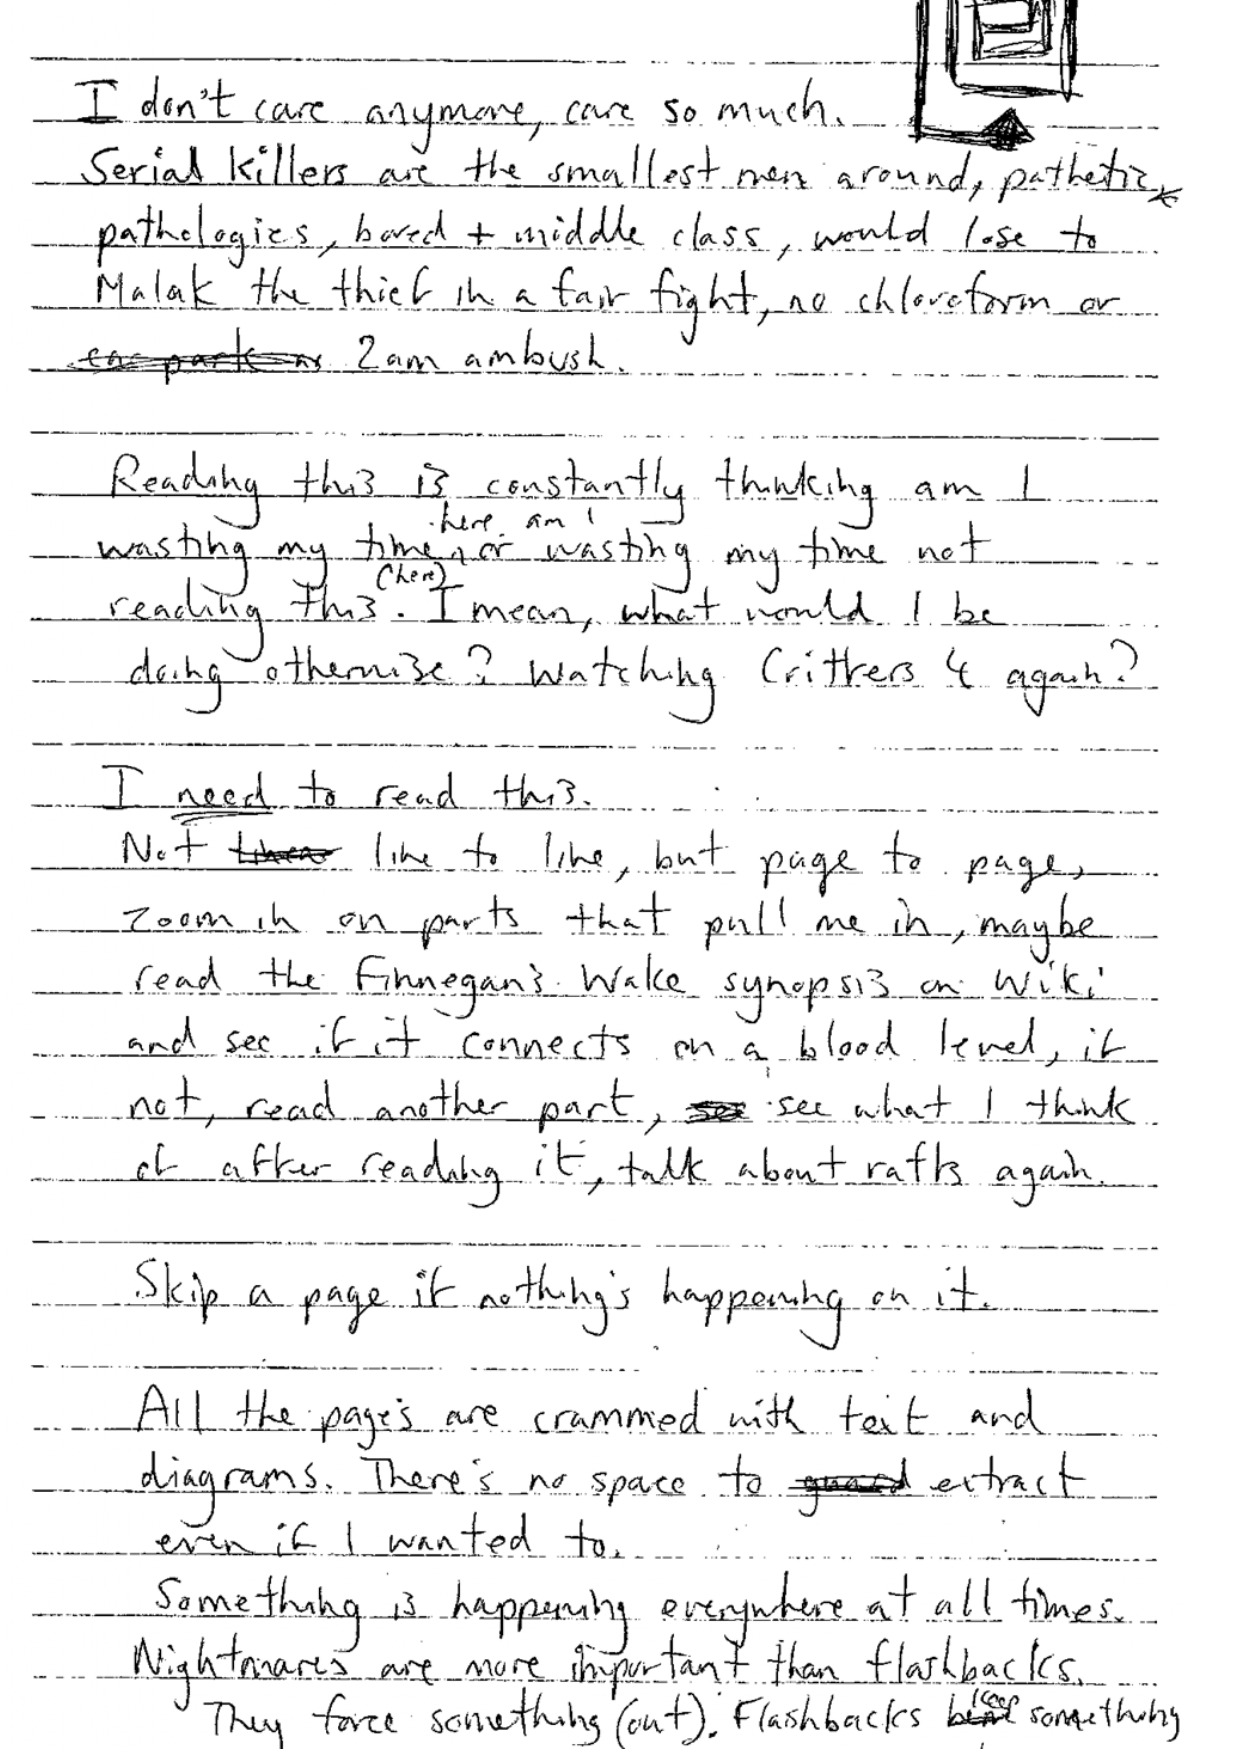 I don't care anymore, care so much.
Serial killers are the smallest men around, pathetic
pathologies, bored + middle class, would lose to
Malak the thief in a fair fight, no chloroform or
2am ambush.
Reading this is constantly thinking am I
here am I
wasting my time, or wasting my time not
(here)
reading this. I mean, what would I be
doing otherwise? Watching Critters 4 again?
I need to read this.
Not like to like, but page to page,
zoom in on parts that pull me in, maybe
read the Finnegan's Wake synopsis on Wiki
and see if it connects on a blood level, if
not, read another part, see what I think
of after reading it, talk about rafts again.
Skip a page if nothing's happening on it.
All the page's are crammed with text and
diagrams. There's no space to extract
even if I wanted to.
Something is happening everywhere at all times.
Nightmares are more important than flashbacks.
keep
They force something (out). Flashbacks something